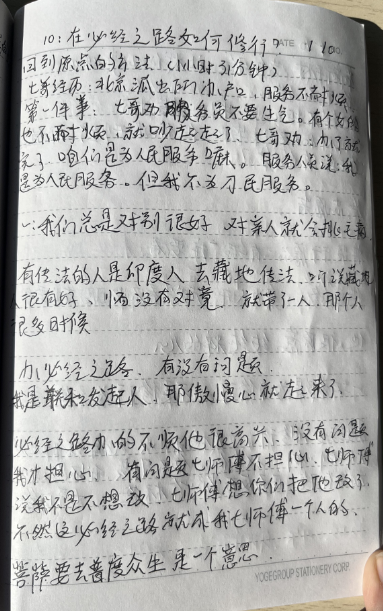 10:在必经之路如何修行?
DATE 1 10
回到原点的方法(小时31分钟)
七哥经历:北京派出所办户口,服务不耐烦
第一件事:七哥劝服务员不要生气。有个女的
也不耐烦,就吵起来了,七哥劝,
完了,咱们是为人民服务嘛。服务人员说,我
是为人民服务。但我不为刁民服务。
一:我们总是对别很好,对亲人就会挑毛病
有传法的人是印度人,去藏地传法,听说藏地
人很友好,怕没有对境,就带了一人,那个人
很多时候
办必经之路,有没有问题
我是联发起人,那傲慢心就起来了,
必经之路办的不顺他很高兴,没有问题
我才担心,有问题七师傅不担心,七师傅
说我不是不想改,七师傅想你们把他改了,
不然这必经之路就成我七师傅一个人的,
菩萨要去普度众生是一个意思,
YOGEGROUP STATIONERY CORP.